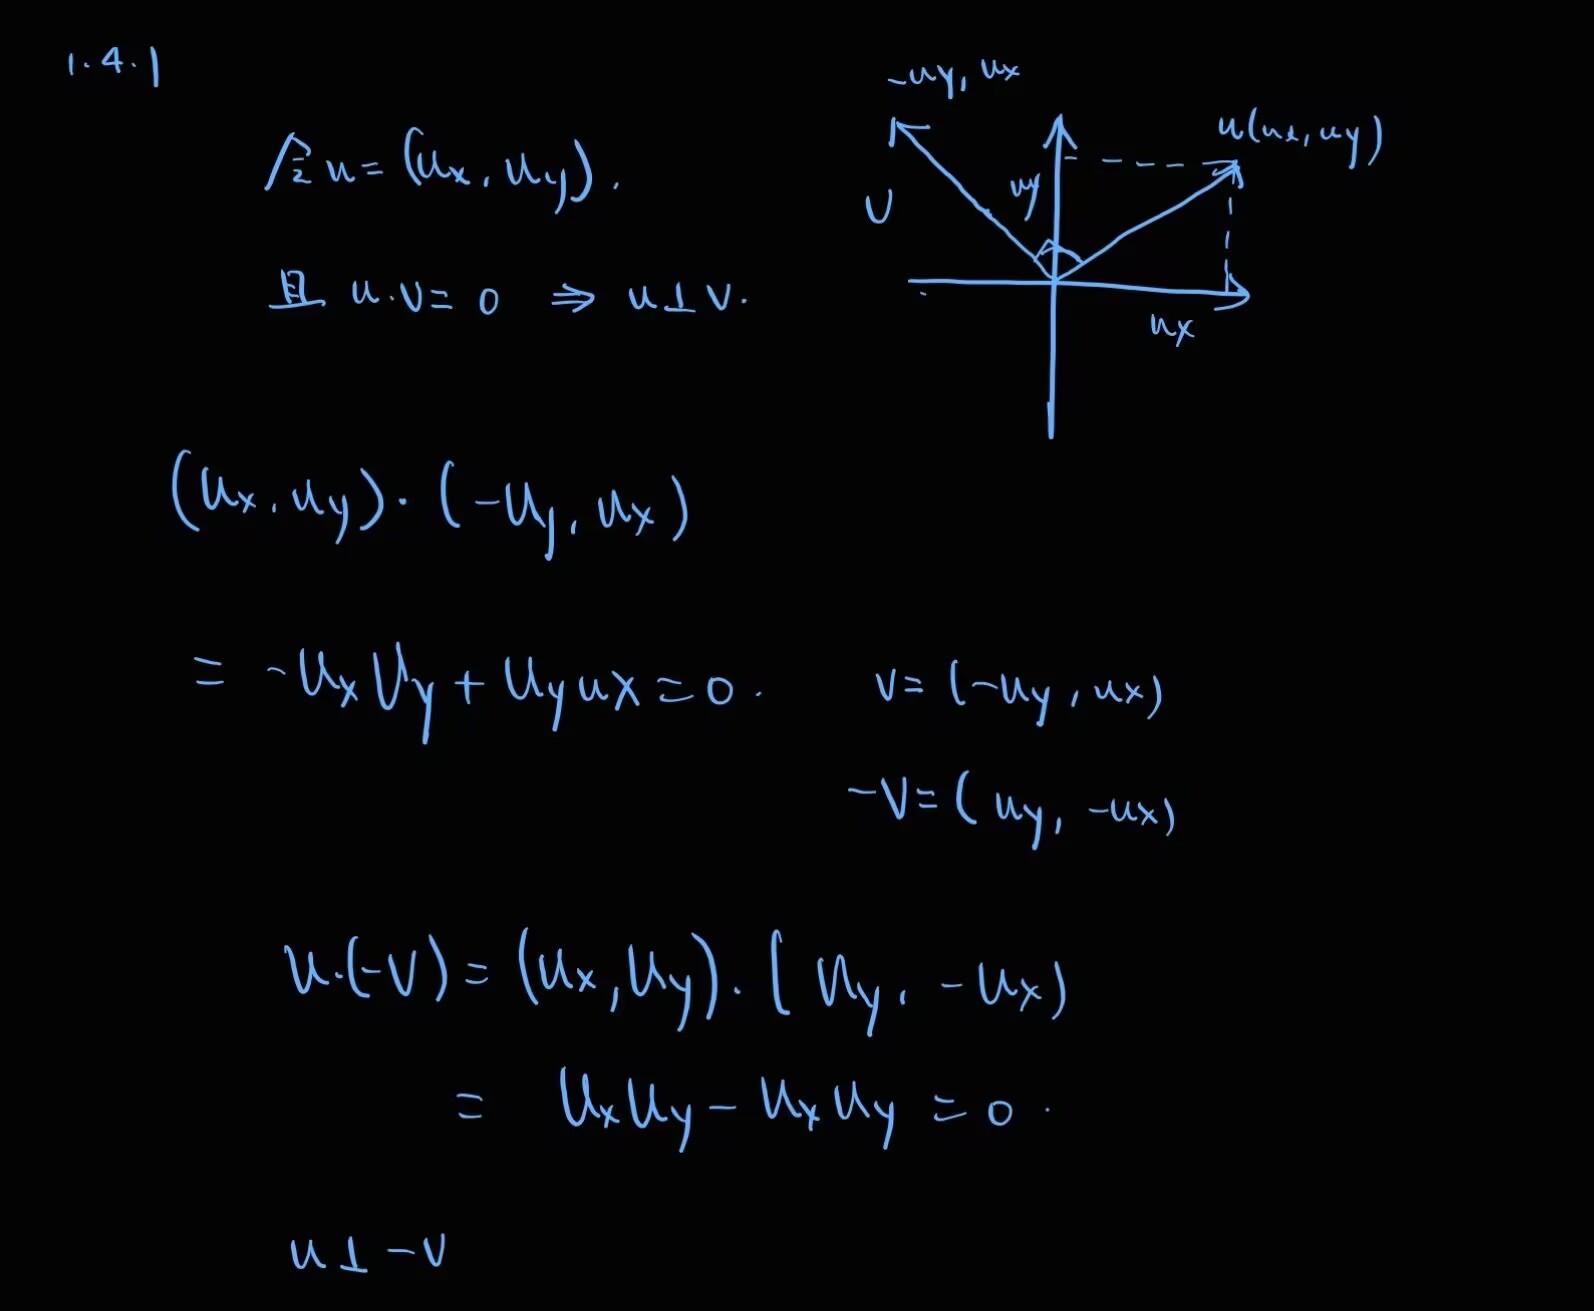 1.4.1
-uy, ux
u(ux, uy)
V
uy
ux
令 u = (ux, uy).
且 u·v = 0 ⇒ u⊥v.
(ux, uy)·(-uy, ux)
= -uxuy + uyux = 0.
v = (-uy, ux)
-v = (uy, -ux)
u·(-v) = (ux, uy)·(uy, -ux)
= uxuy - uxuy = 0.
u⊥-v